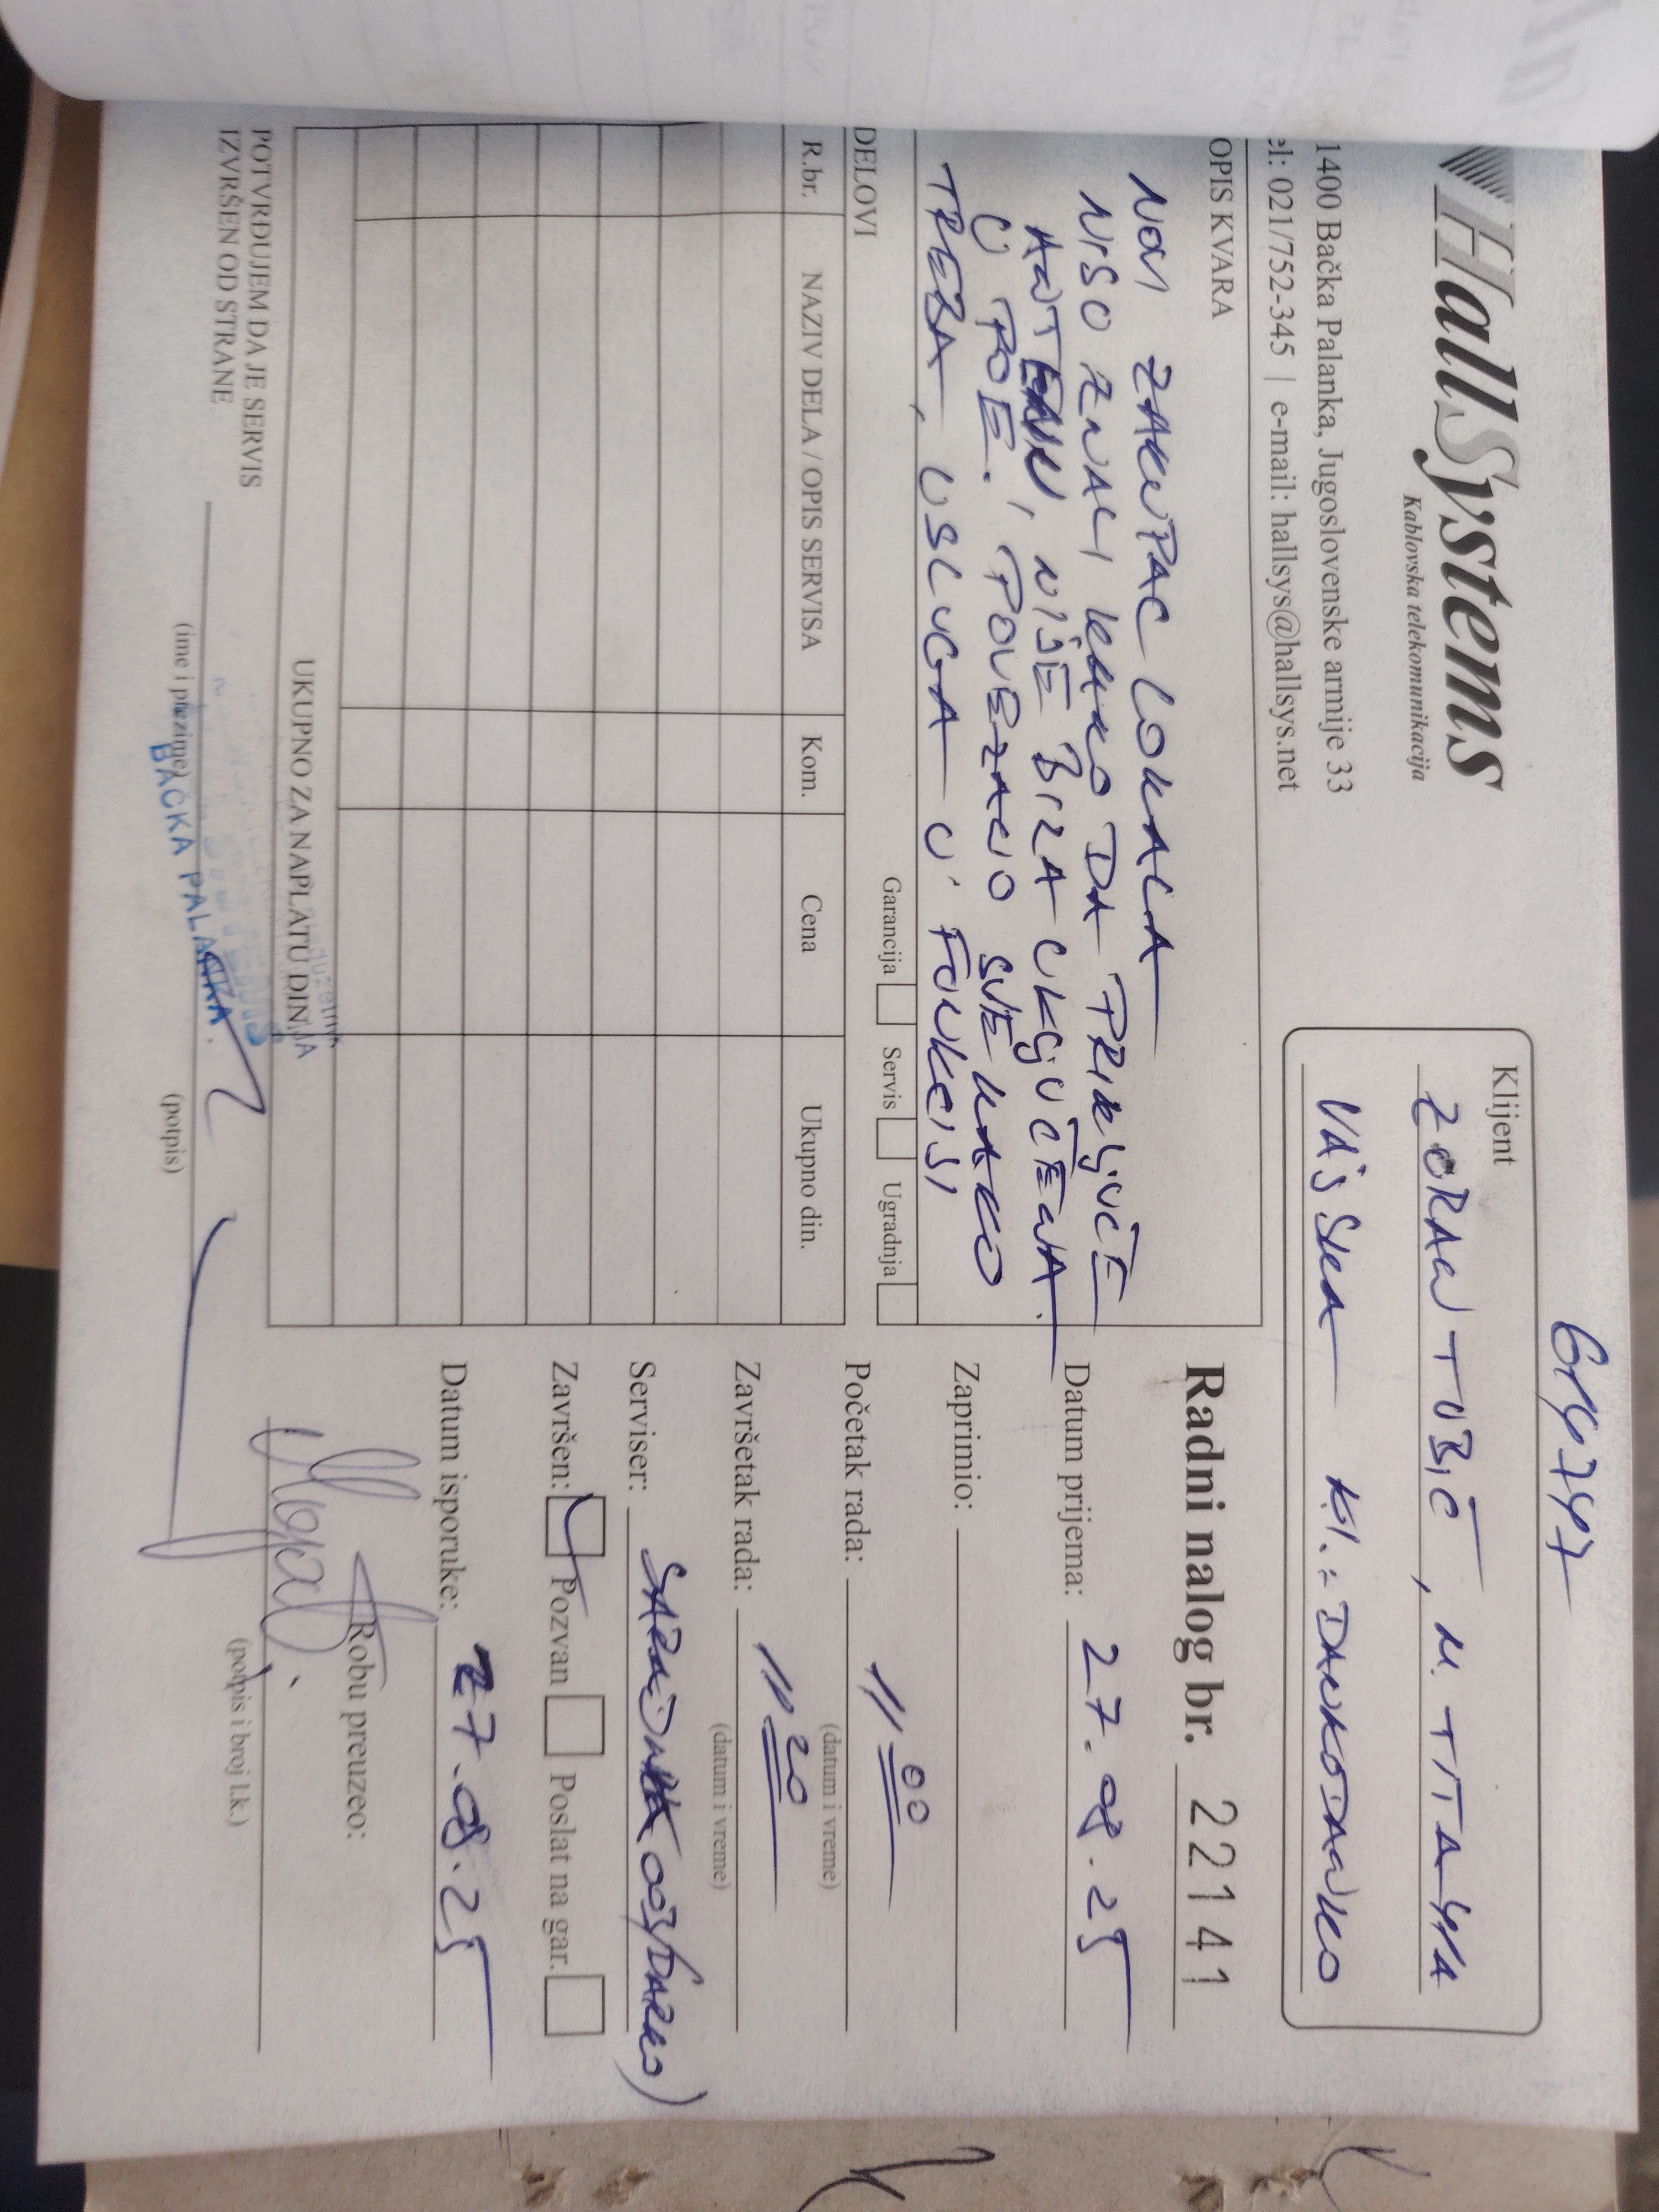 644747
HallSystems
Kablovska telekomunikacija
1400 Bačka Palanka, Jugoslovenske armije 33
el: 021/752-345 | e-mail: hallsys@hallsys.net
Klijent
ZORAN TUBIĆ, M. TITA
VAJSKA
OPIS KVARA
NOVI ZAKUPAC LOKALA
NISO ZNALI KAKO DA PRIKLJUČE
ANTENU, NIJE BILA UKLJUČENA
U POE. POVEZANO SVE KAKO
TREBA, USLUGA U FUNKCIJI
Garancija Servis Ugradnja
DELOVI
R.br. NAZIV DELA / OPIS SERVISA Kom. Cena Ukupno din.
UKUPNO ZA NAPLATU DIN.
POTVRĐUJEM DA JE SERVIS
IZVRŠEN OD STRANE
(ime i prezime) (potpis)
BAČKA PALANKA
Radni nalog br. 22141
Datum prijema: 27.08.25
Zaprimio:
Početak rada: 11 00
(datum i vreme)
Završetak rada: 11 20
(datum i vreme)
Serviser:
Završen: Pozvan Poslat na gar.
Datum isporuke: 27.08.25
Robu preuzeo:
(potpis i broj l.k.)